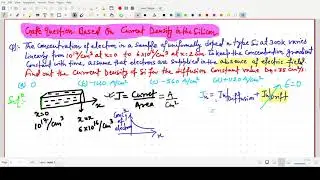 Gate Question Based On Current Density in the Silicon
Q1: The concentration of electron in a sample of uniformly doped n type Si at 300k varies
linearly from 10^17/cm^3 at x=0 to 6×10^16/cm^3 at x=2 um to keep the concentration gradient
Constant with time, assume that electrons are supplied in the absence of electric field.
Find out the Current Density of Si for the diffusion Constant value Dn = 35 cm²/s.
(A) 0 (B) -1120 A/cm² (C) -560 A/cm² (D) +1120 A/cm²
Sol:
J = Current/Area = A/cm²
Jn = Jn Diffusion + Jn Drift
E=0
x=0
10^17/cm^3
x=2
6×10^16/cm^3
of
electron
x
Jn =